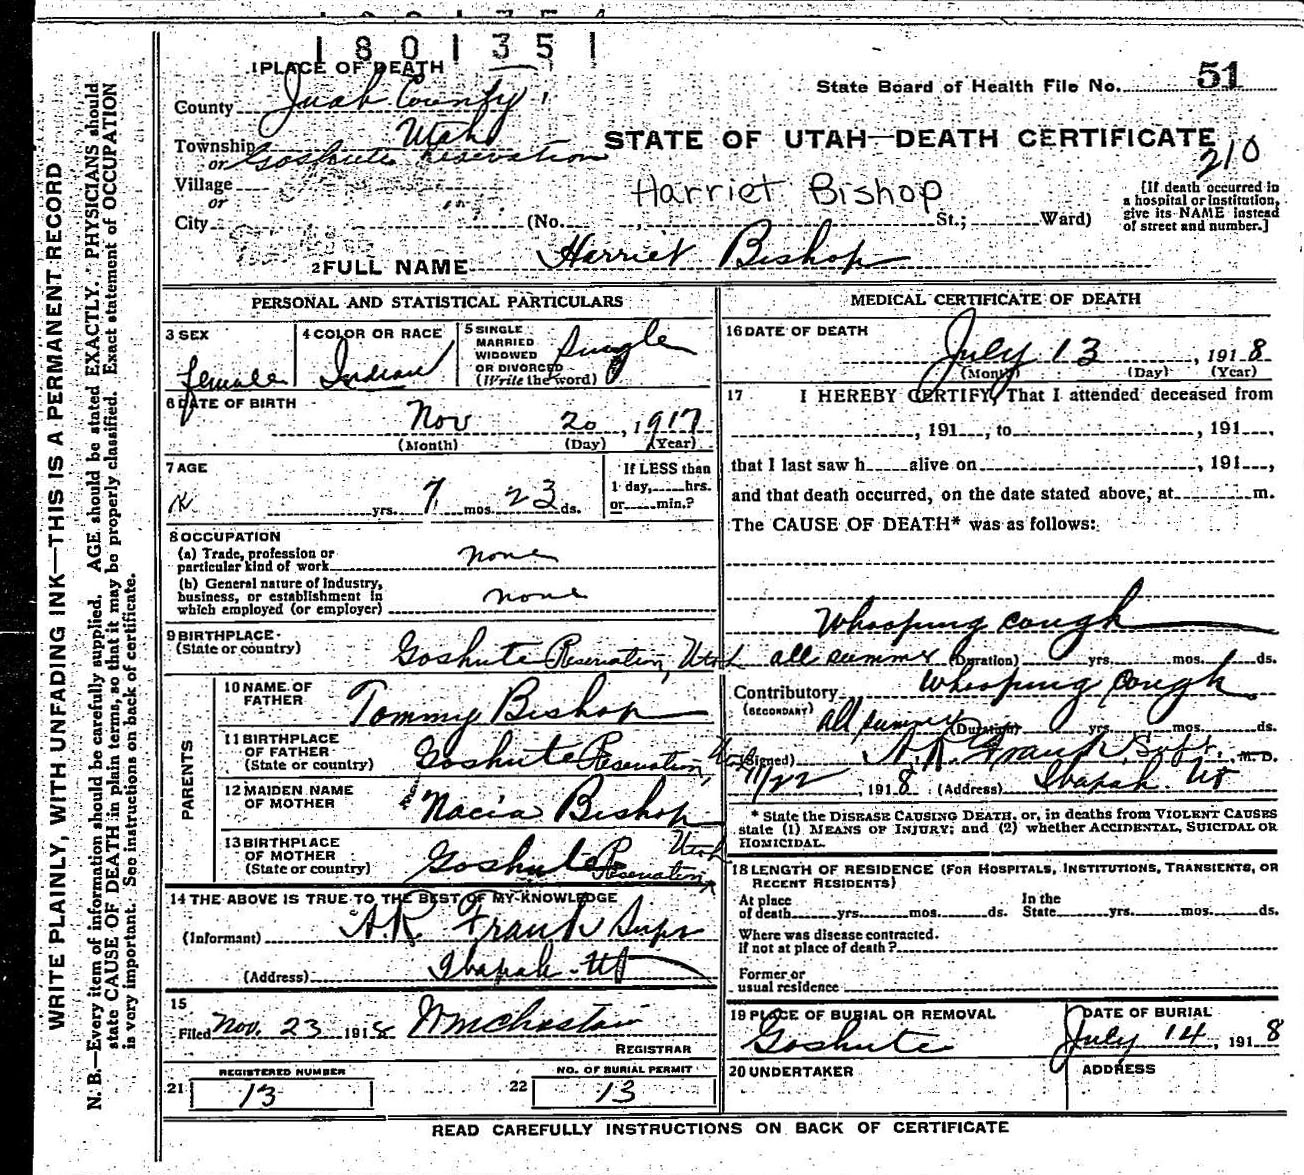 1801351
1 PLACE OF DEATH
State Board of Health File No. 51
County Juab County
Utah
Township
or Goshute Reservation
STATE OF UTAH—DEATH CERTIFICATE
210
Village
or
Harriet Bishop
[If death occurred in
a hospital or institution,
give its NAME instead
of street and number.]
City (No. St.; Ward)
2 FULL NAME Harriet Bishop
PERSONAL AND STATISTICAL PARTICULARS
3 SEX
female
4 COLOR OR RACE
Indian
5 SINGLE
MARRIED
WIDOWED
OR DIVORCED
(Write the word)
Single
6 DATE OF BIRTH
Nov 20, 1917
(Month) (Day) (Year)
7 AGE
yrs. 7 mos. 23 ds.
If LESS than
1 day, hrs.
or min.?
8 OCCUPATION
(a) Trade, profession or
particular kind of work none
(b) General nature of industry,
business, or establishment in
which employed (or employer) none
9 BIRTHPLACE
(State or country) Goshute Reservation, Utah
PARENTS
10 NAME OF
FATHER Tommy Bishop
11 BIRTHPLACE
OF FATHER
(State or country) Goshute Reservation,
12 MAIDEN NAME
OF MOTHER Nacia Bishop
13 BIRTHPLACE
OF MOTHER
(State or country) Goshute Reservation Utah
14 THE ABOVE IS TRUE TO THE BEST OF MY KNOWLEDGE
(Informant) A.R. Frank Supt
(Address) Ibapah Ut
15
Filed Nov. 23 1918
REGISTRAR
REGISTERED NUMBER
21 13
NO. OF BURIAL PERMIT
22 13
MEDICAL CERTIFICATE OF DEATH
16 DATE OF DEATH
July 13, 1918
(Month) (Day) (Year)
17 I HEREBY CERTIFY, That I attended deceased from
, 191 , to , 191 ,
that I last saw h alive on , 191 ,
and that death occurred, on the date stated above, at m.
The CAUSE OF DEATH* was as follows:
Whooping cough
all summer (Duration) yrs. mos. ds.
Contributory Whooping Cough
(SECONDARY)
all summer (Duration) yrs. mos. ds.
(Signed) A.R. Frank, Supt. M. D.
11/22, 1918 (Address) Ibapah Ut
* State the DISEASE CAUSING DEATH, or, in deaths from VIOLENT CAUSES
state (1) MEANS OF INJURY; and (2) whether ACCIDENTAL, SUICIDAL OR
HOMICIDAL.
18 LENGTH OF RESIDENCE (FOR HOSPITALS, INSTITUTIONS, TRANSIENTS, OR
RECENT RESIDENTS)
At place
of death yrs. mos. ds.
In the
State yrs. mos. ds.
Where was disease contracted.
if not at place of death?
Former or
usual residence
19 PLACE OF BURIAL OR REMOVAL
Goshute
DATE OF BURIAL
July 14, 1918
20 UNDERTAKER
ADDRESS
READ CAREFULLY INSTRUCTIONS ON BACK OF CERTIFICATE
WRITE PLAINLY, WITH UNFADING INK—THIS IS A PERMANENT RECORD
N. B.—Every item of information should be carefully supplied. AGE should be stated EXACTLY. PHYSICIANS should
state CAUSE OF DEATH in plain terms, so that it may be properly classified. Exact statement of OCCUPATION
is very important. See instructions on back of certificate.